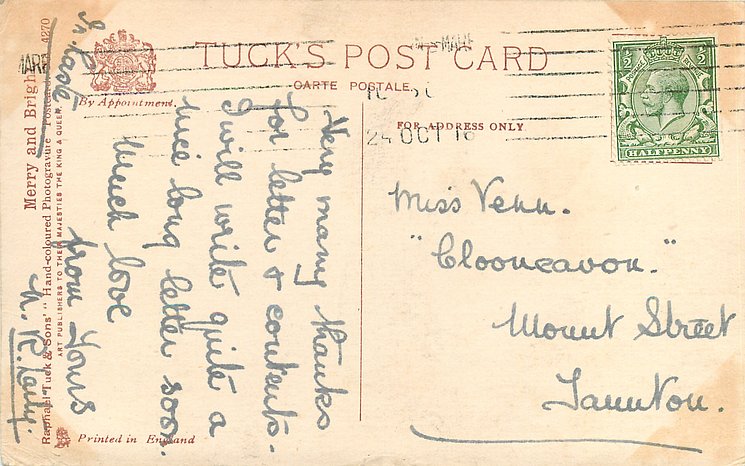 TUCK'S POST CARD
CARTE POSTALE
By Appointment.
FOR ADDRESS ONLY
MARE
-MARE
24 OCT 16
½ ½
HALFPENNY
In haste
Very many thanks
for letter & contents.
I will write quite a
nice long letter soon.
Much love
from Yours
Miss Venn.
"Clooneavon."
Mount Street
Taunton.
Merry and Brigh 4270
Raphael Tuck & Sons' "Hand-coloured Photogravure" Postcard
ART PUBLISHERS TO THEIR MAJESTIES THE KING & QUEEN.
Printed in England